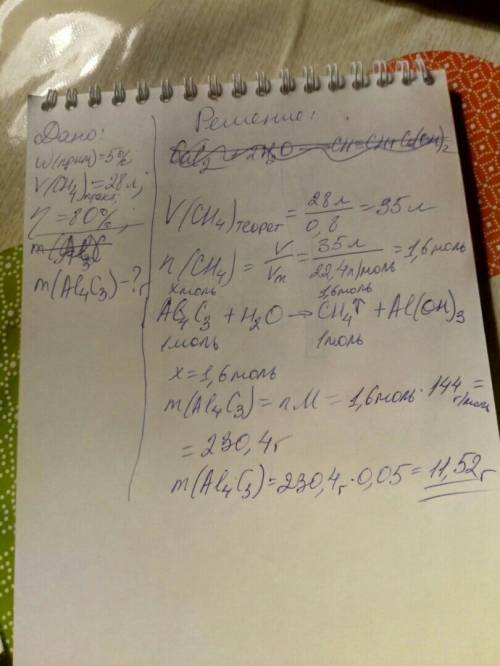 Дано:
w(прим)=5%
V(CH4)практ.=28л;
η=80%;
m(Al4C3)-?г
Решение:
CaC2 + 2H2O
V(CH4)теорет = 28л / 0,8 = 35л
n(CH4) = V / Vm = 35л / 22,4л/моль = 1,6моль
xмоль 1,6моль
Al4C3 + H2O → CH4↑ + Al(OH)3
1моль 1моль
x = 1,6моль
m(Al4C3) = nM = 1,6моль · 144 г/моль =
= 230,4г
m(Al4C3) = 230,4г · 0,05 = 11,52г